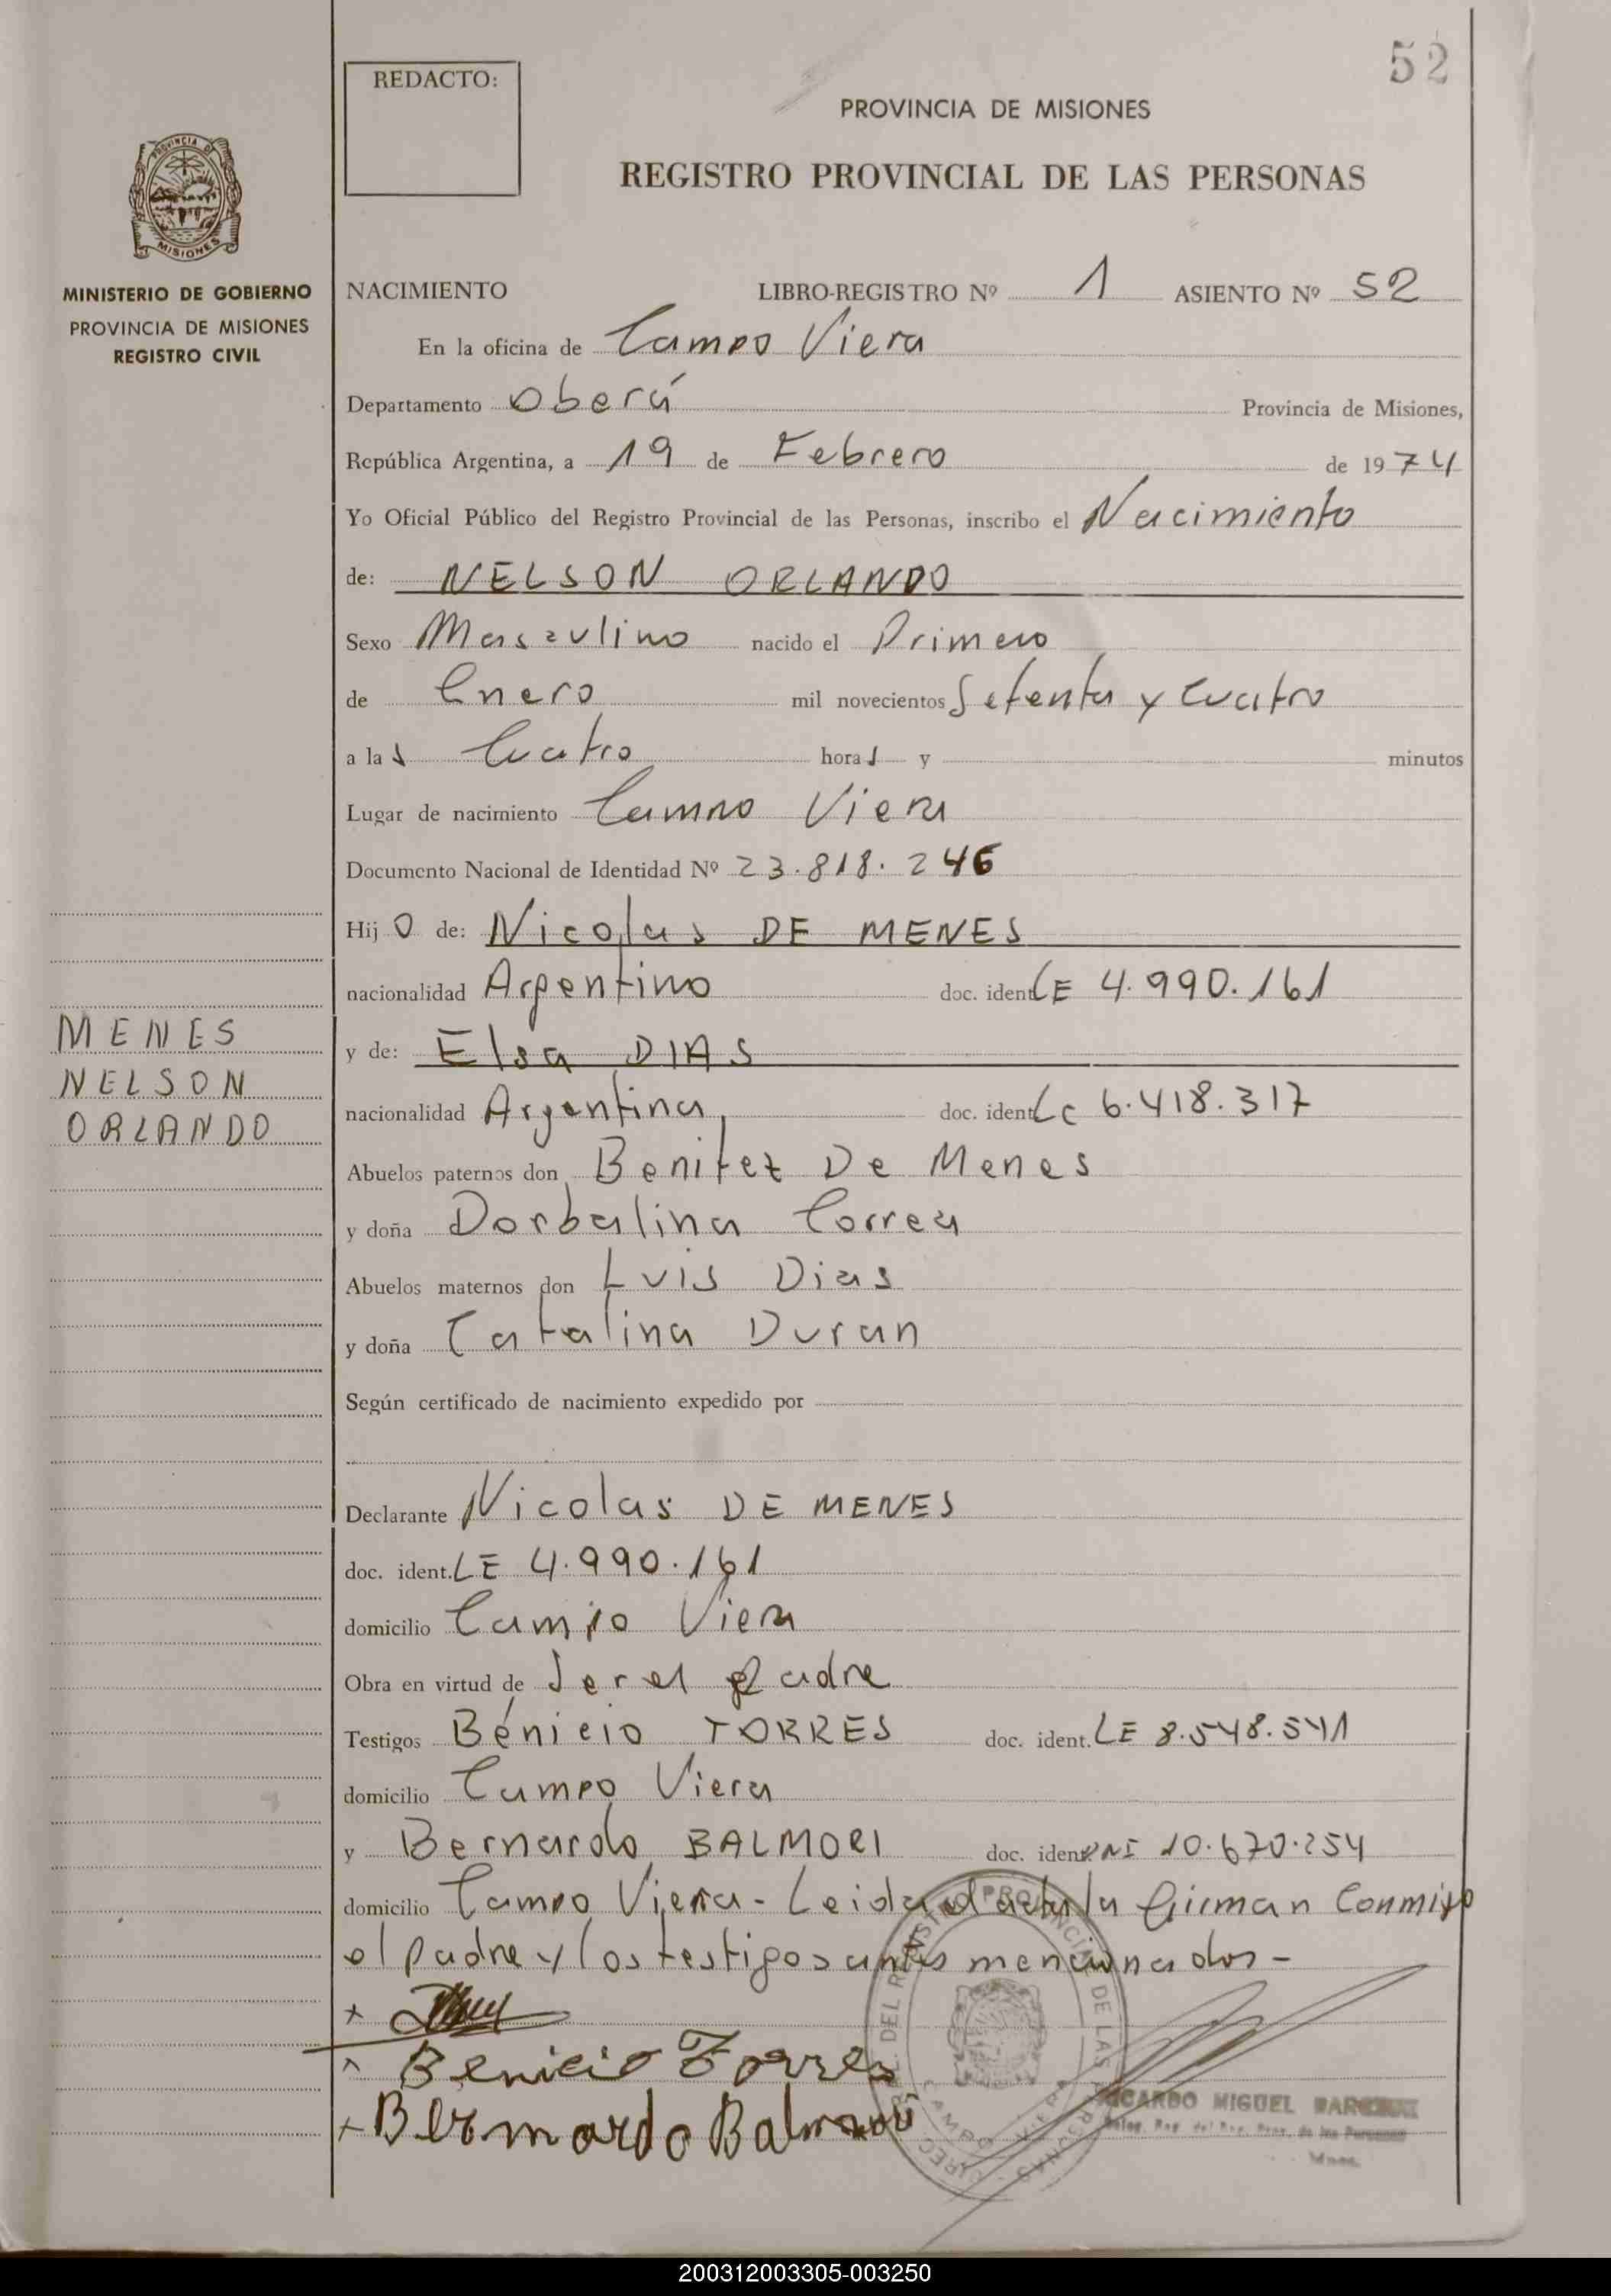 52
REDACTO:
PROVINCIA DE MISIONES
REGISTRO PROVINCIAL DE LAS PERSONAS
PROVINCIA D
MISIONES
MINISTERIO DE GOBIERNO
PROVINCIA DE MISIONES
REGISTRO CIVIL
NACIMIENTO LIBRO-REGISTRO Nº 1 ASIENTO Nº 52
En la oficina de Campo Viera
Departamento Oberá Provincia de Misiones,
República Argentina, a 19 de Febrero de 1974
Yo Oficial Público del Registro Provincial de las Personas, inscribo el Nacimiento
de: NELSON ORLANDO
Sexo Masculino nacido el Primero
de Enero mil novecientos Setenta y Cuatro
a las Cuatro horas y minutos
Lugar de nacimiento Campo Viera
Documento Nacional de Identidad Nº 23.818.246
Hijo de: Nicolas DE MENES
nacionalidad Argentino doc. ident LE 4.990.161
y de: Elsa DIAS
nacionalidad Argentina doc. ident Lc 6.418.317
Abuelos paternos don Benitez De Menes
y doña Dorbalina Correa
Abuelos maternos don Luis Dias
y doña Catalina Duran
Según certificado de nacimiento expedido por
Declarante Nicolas DE MENES
doc. ident. LE 4.990.161
domicilio Campo Viera
Obra en virtud de Ser el Padre
Testigos Bénicio TORRES doc. ident. LE 8.548.541
domicilio Campo Viera
y Bernardo BALMORI doc. ident DNI 10.670.254
domicilio Campo Viera - Leida el acta la Firman Conmigo
el padre y los testigos antes mencionados -
x
x Benicio Torres
x Bernardo Balmori
RICARDO MIGUEL
MENES
NELSON
ORLANDO
200312003305-003250